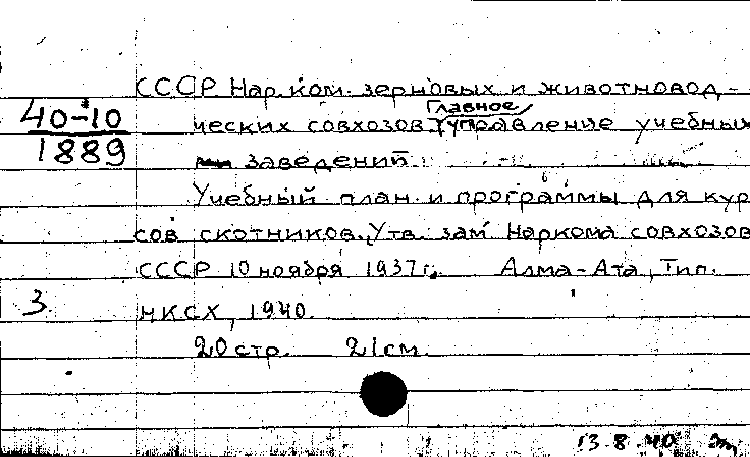 СССР Нар. ком. зерновых и животновод-
40-10
1889
ческих совхозов. Главное управление учебных
заведений.
Учебный план и программы для кур
сов скотников. Утв. зам. Наркома совхозов
СССР 10 ноября 1937 г. Алма-Ата, Тип.
3.
НКСХ, 1940.
20 стр. 21 см.
13.8.40